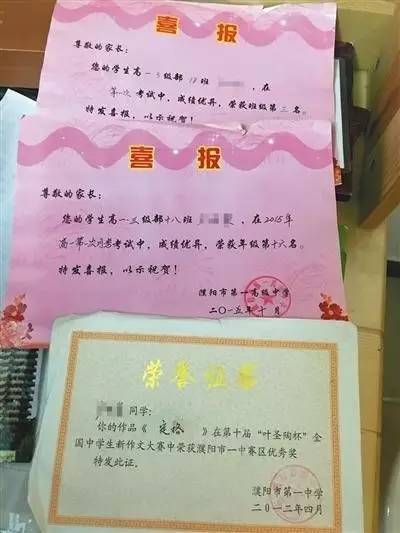 喜报
尊敬的家长：
您的学生高一·三级部18班
，在
第一次考试中，成绩优异，荣获班级第三名。
特发喜报，以示祝贺！
喜报
尊敬的家长：
您的学生高一·三级部十八班
，在2015年
高一第一次月考考试中，成绩优异，荣获年级第十六名。
特发喜报，以示祝贺！
濮阳市第一高级中学
二〇一五年十月
荣誉证书
同学：
你的作品《定格》在第十届“叶圣陶杯”全
国中学生新作文大赛中荣获濮阳市一中赛区优秀奖
特发此证。
濮阳市第一中学
二〇一二年四月